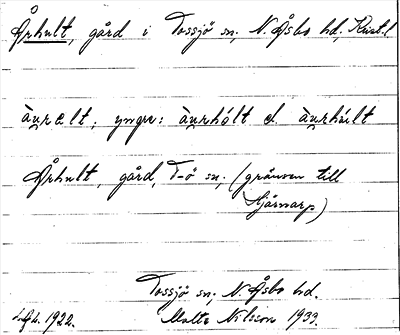 Århult, gård i Tossjö sn, N. Åsbo hd, Krist. l
àu̯rælt, yngre: àu̯rhólt el. àu̯rhúlt
Århult, gård, T-ö sn, (gränsen till
Hjärnarp)
Tossjö sn, N. Åsbo hd.
1922. Malte Nilsson 1933.